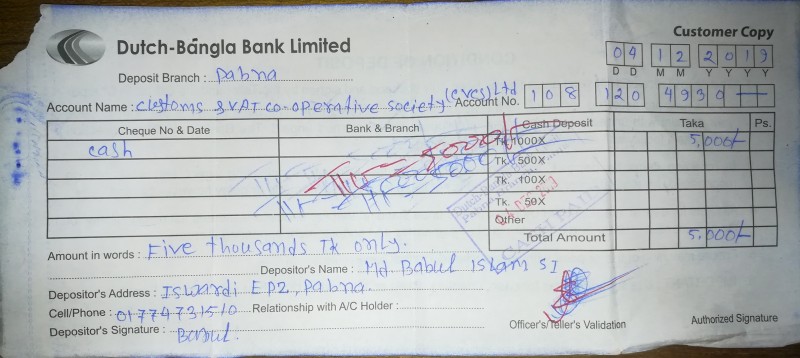 Customer Copy
Dutch-Bangla Bank Limited
04 12 2013
D D M M Y Y Y Y
Deposit Branch : Pabna
Account Name : Customs & VAT co-operative society (CVCS) Ltd Account No. 108 120 4930
Cheque No & Date Bank & Branch Cash Deposit Taka Ps.
cash Tk. 1000X 5,000/-
Tk. 500X
Tk. 100X
Tk. 50X
Other
Total Amount 5,000/-
Amount in words : Five thousands Tk only.
Depositor's Name : Md. Babul Islam SI
Depositor's Address : Iswardi EPZ, Pabna.
Cell/Phone : 01774731510 Relationship with A/C Holder :
Depositor's Signature : Babul.
Officer's/Teller's Validation Authorized Signature